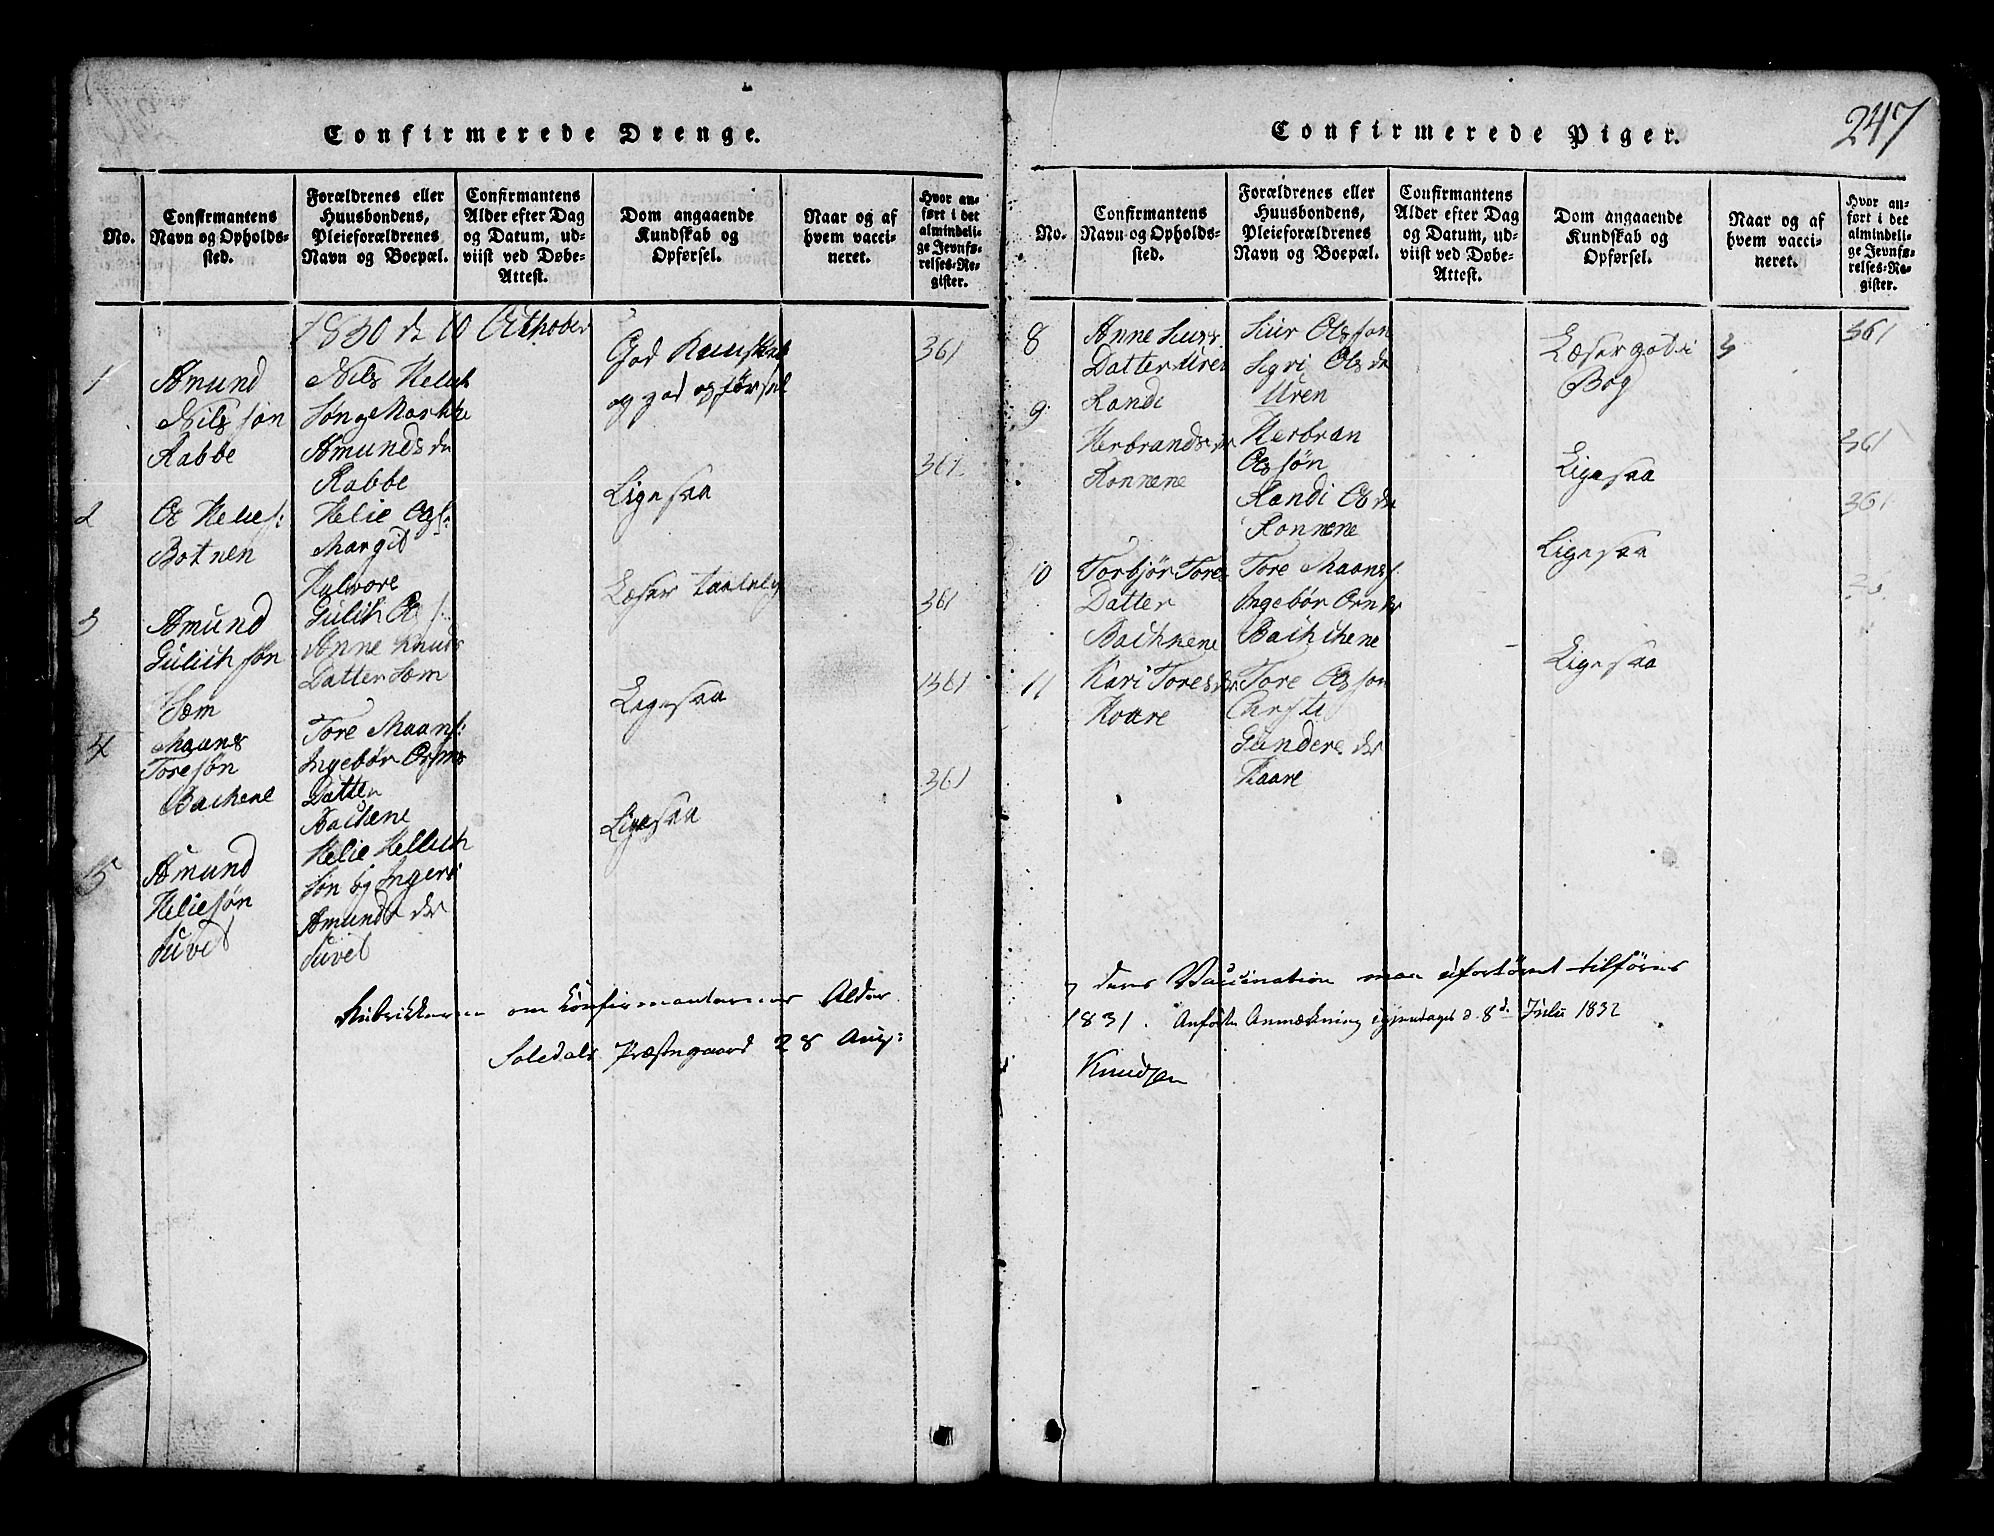 247
Confirmerede Drenge.
No.
Confirmantens
Navn og Opholds-
sted.
Forældrenes eller
Huusbondens,
Pleieforældrenes
Navn og Boepæl.
Confirmantens
Alder efter Dag
og Datum, ud-
viist ved Døbe-
Attest.
Dom angaaende
Kundskab og
Opførsel.
Naar og af
hvem vacci-
neret.
Hvor an-
ført i det
almindeli-
ge Jevnfø-
relses-Re-
gister.
1830 d 10 Octhober
1
Amund
Nils søn
Rabbe
Nils Helich
Søn og Markhe
Amunds dr
Rabbe
God Kunskab
og god opførsel
361
2
Ol Helies:
Botnen
Helie Ols:
Margit
Halvore
Ligesaa
361
3
Amund
Gulich søn
Sæm
Gulich Ols:
Anne Knuds
Datter Sæm
Læser taalelig
361
4
Maans
Toresøn
Bachene
Tore Maans:
Ingebør Orms
Datter
Bachene
Ligesaa
361
5
Amund
Heliesøn
Suvel
Helie Hellich
Søn og Ingeri
Amunds dr
Suvel
Ligesaa
361
Rubrikkerne om Confirmanternes Alder
Soledals Præstegaard 28 Aug:
Confirmerede Piger.
No.
Confirmantens
Navn og Opholds-
sted.
Forældrenes eller
Huusbondens,
Pleieforældrenes
Navn og Boepæl.
Confirmantens
Alder efter Dag
og Datum, ud-
viist ved Døbe-
Attest.
Dom angaaende
Kundskab og
Opførsel.
Naar og af
hvem vacci-
neret.
Hvor an-
ført i det
almindeli-
ge Jevnfø-
relses-Re-
gister.
8
Anne Siurs
Datter Uren
Siur Olssøn
Sigri Ols dr
Uren
Læser got i
Bog
361
9
Randi
Herbrands dr
Ronnene
Herbran
Olssøn
Randi Ols dr
Ronnene
Ligesaa
361
10
Torbjør Tores
Datter
Bachnene
Tore Maans:
Ingebør Orm dr
Bachchene
Ligesaa
361
11
Kari Tores dr
Kaare
Tore Olssøn
Christi
Gundere dr
Kaare
Ligesaa
og deres Vaccination maa ufortøvet tilføres
1831. Anførte Anmærkning igjentaget d. 8d. Julii 1832
Knudsen